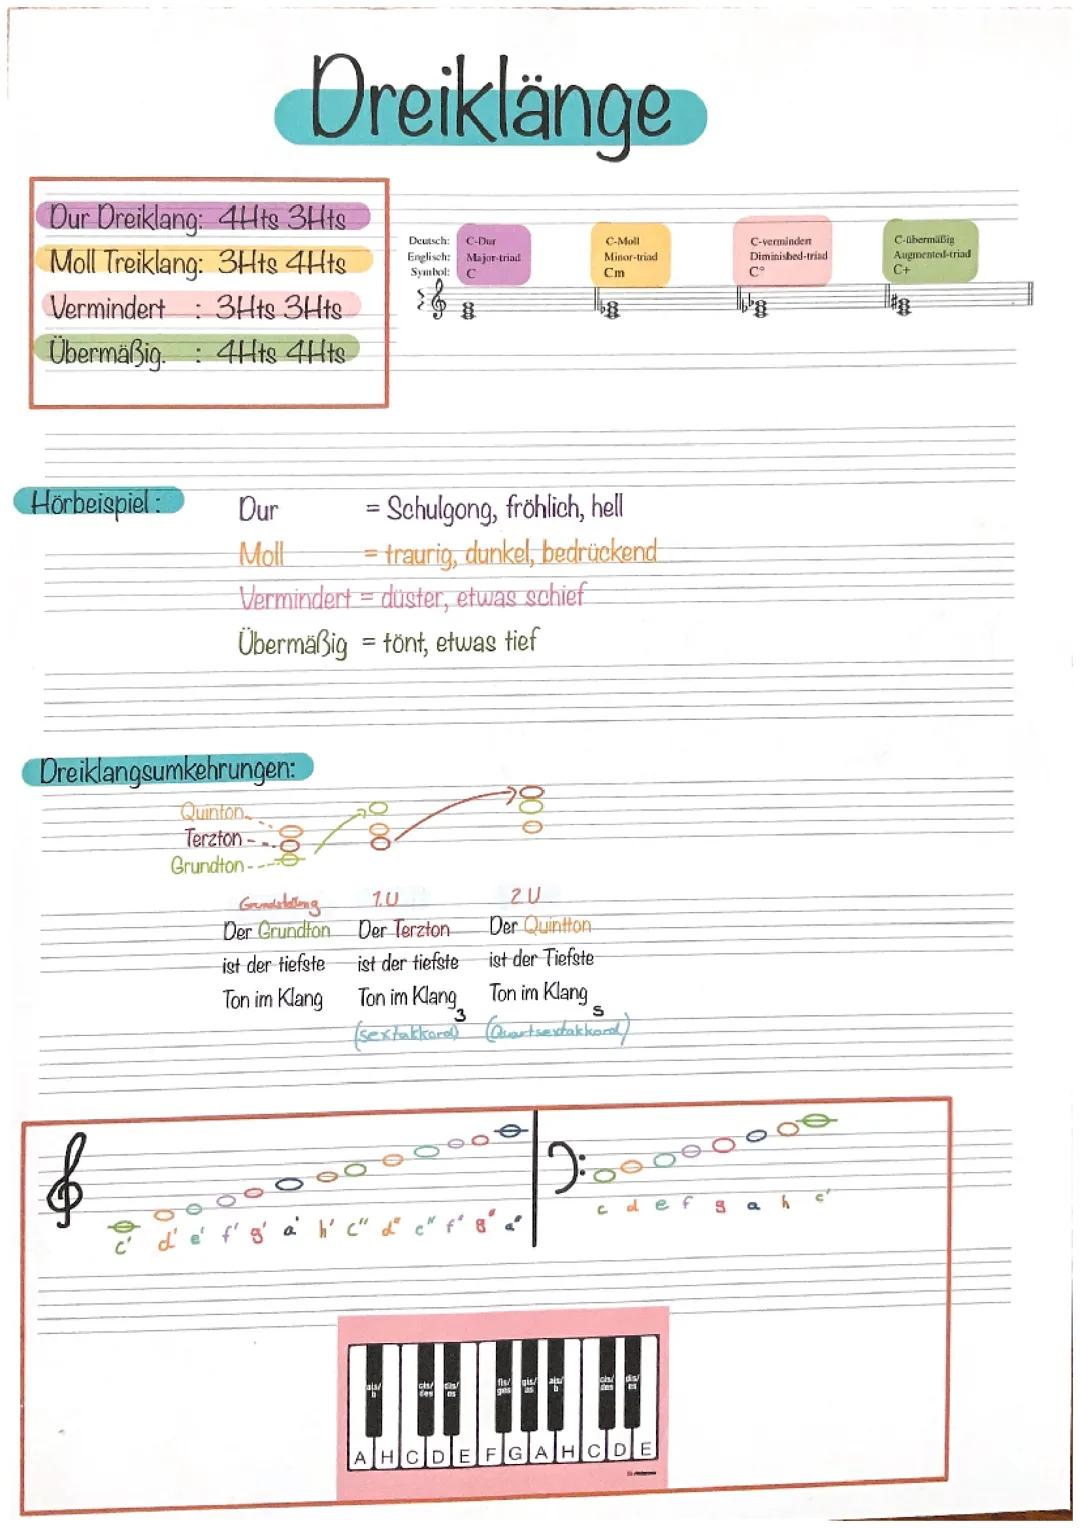 Dreiklänge
Dur Dreiklang: 4Hts 3Hts
Moll Treiklang: 3Hts 4Hts
Vermindert : 3Hts 3Hts
Übermäßig. : 4Hts 4Hts
Deutsch: C-Dur C-Moll C-vermindert C-übermäßig
Englisch: Major-triad Minor-triad Diminished-triad Augmented-triad
Symbol: C Cm C° C+
Hörbeispiel:
Dur = Schulgong, fröhlich, hell
Moll = traurig, dunkel, bedrückend
Vermindert = düster, etwas schief
Übermäßig = tönt, etwas tief
Dreiklangsumkehrungen:
Quinton
Terzton
Grundton
Grundstellung 1.U 2 U
Der Grundton Der Terzton Der Quintton
ist der tiefste ist der tiefste ist der Tiefste
Ton im Klang Ton im Klang 3 Ton im Klang 5
(sextakkord) (Quartsextakkord)
c' d' e' f' g' a' h' c'' d'' e'' f'' g'' a'' c d e f g a h c'
ais/ b cis/ des dis/ es fis/ ges gis/ as ais/ b cis/ des dis/ es
A H C D E F G A H C D E